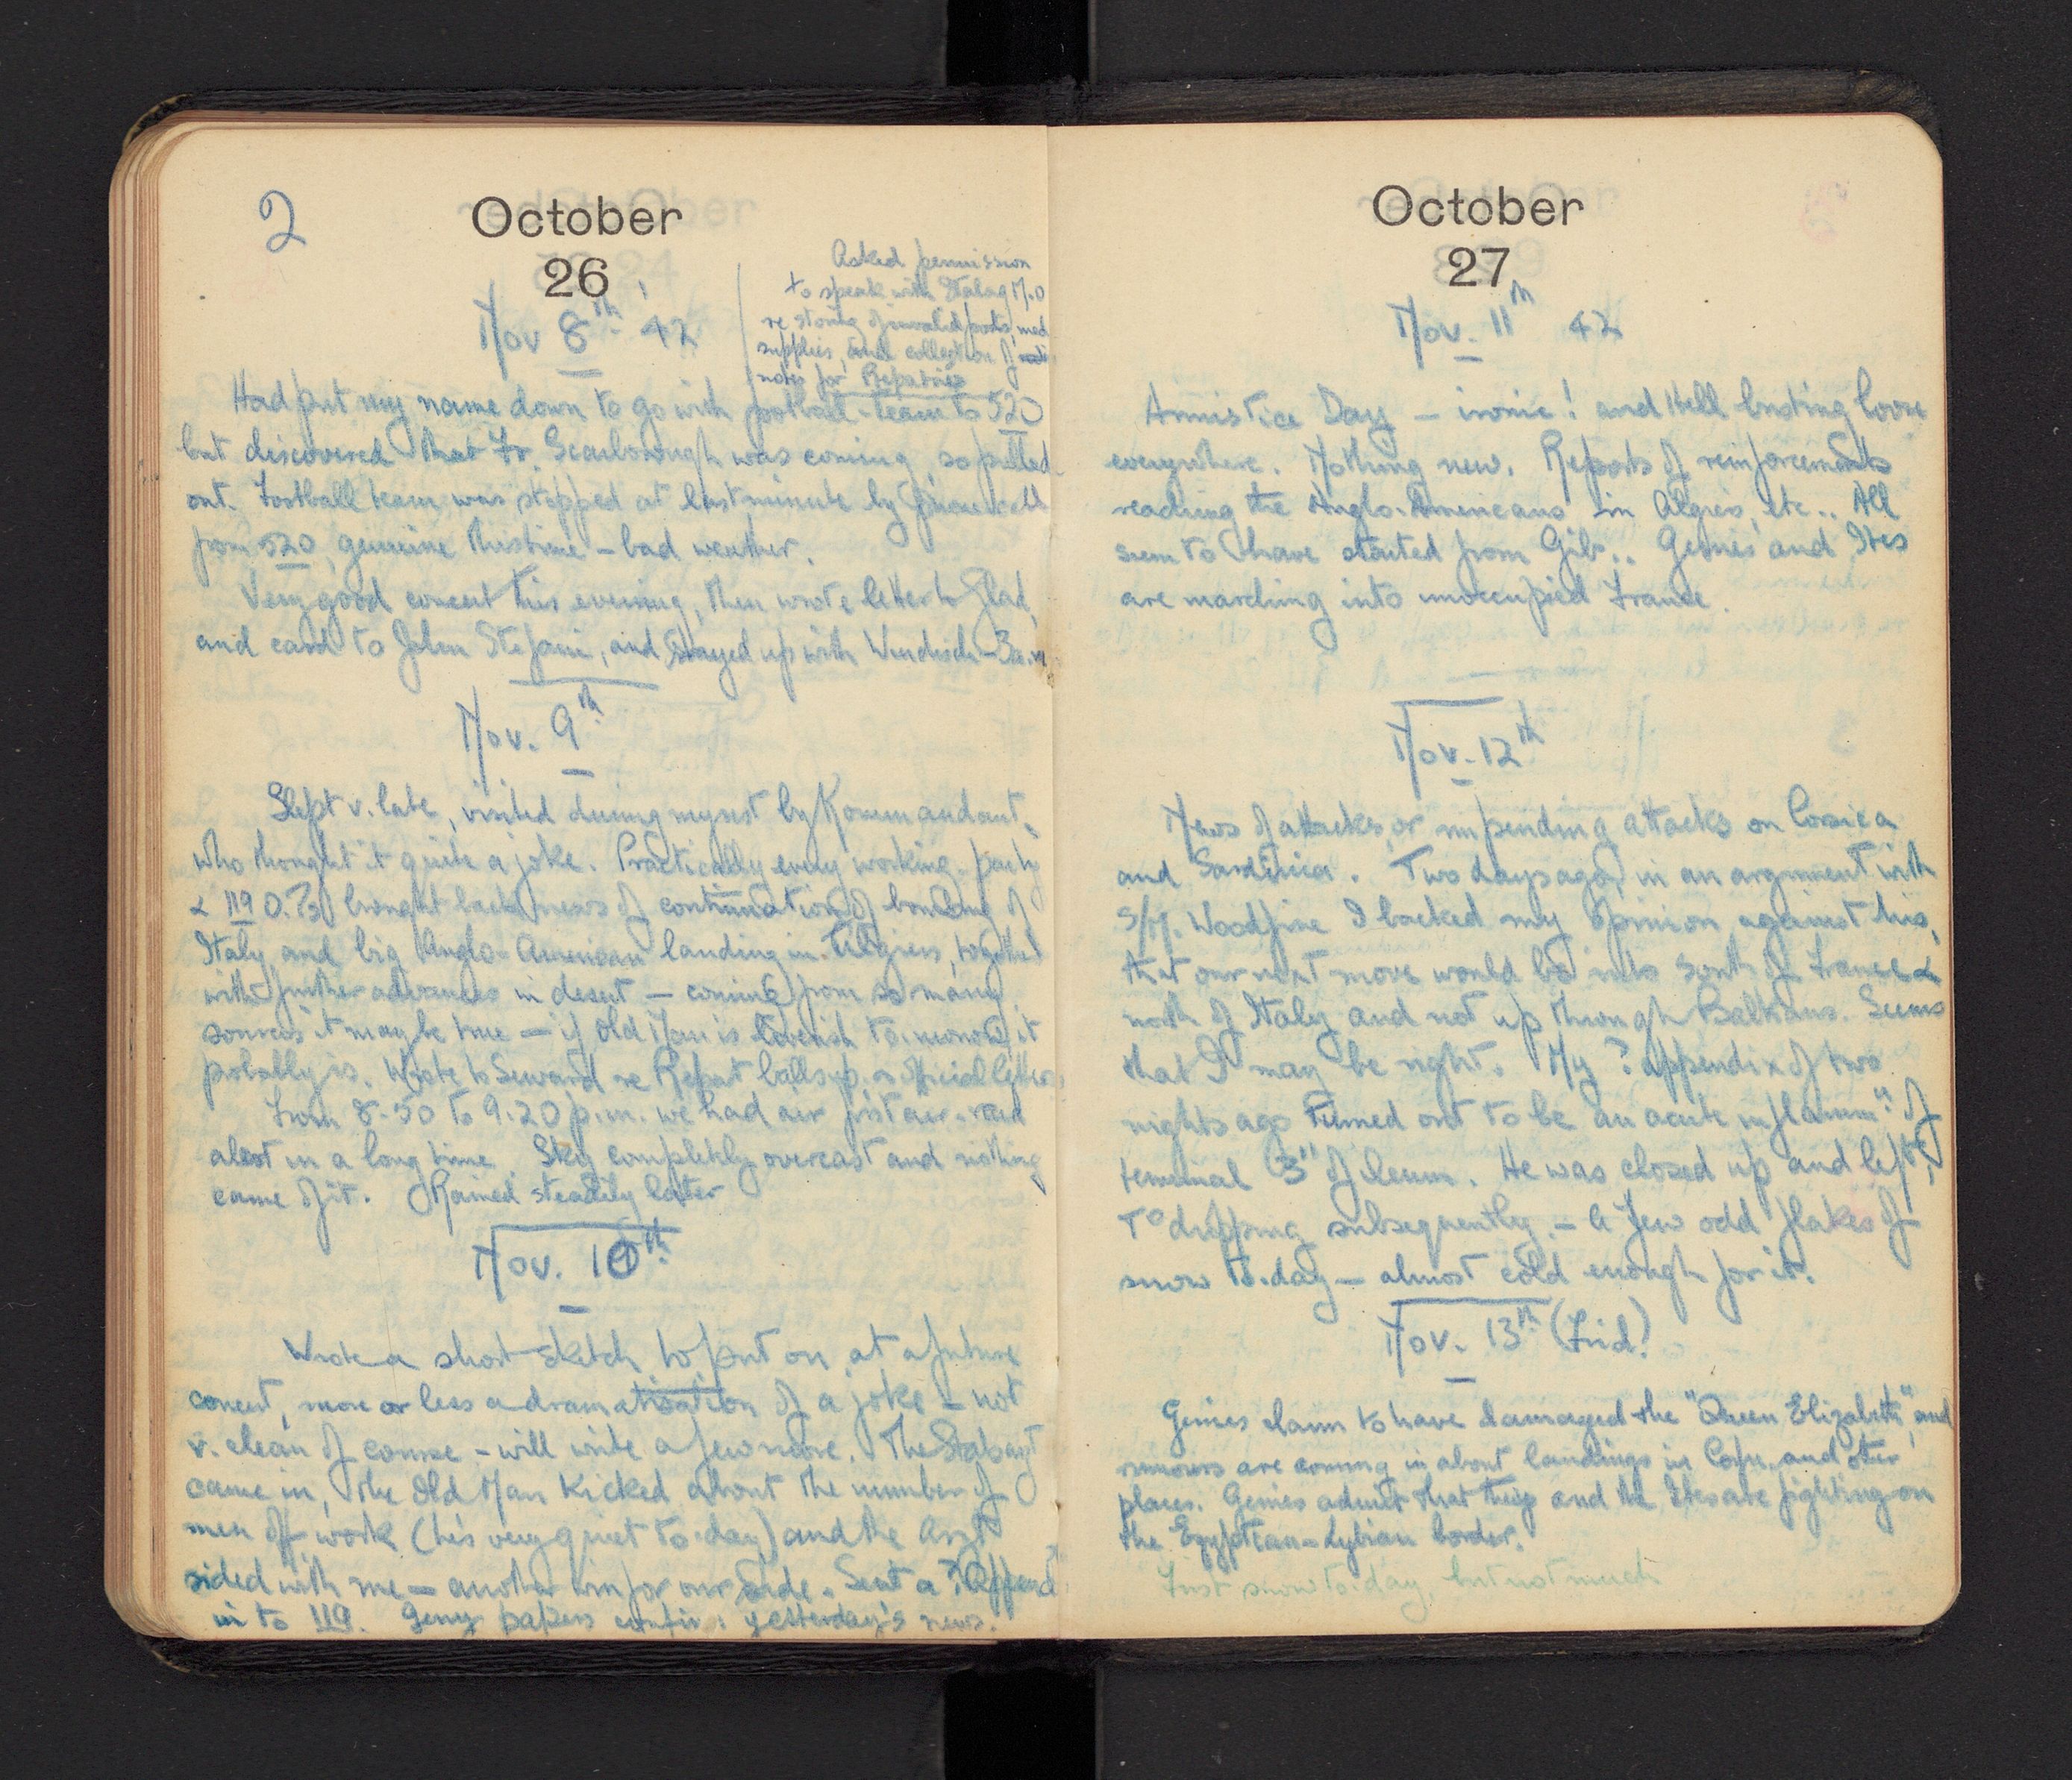 2
October
26
Nov 8th 42
Asked permission
to speak with Stalag M.O
re storing of invalid foods, med
supplies, and collection of
notes for Repatries
Had put my name down to go with football-team to 520
but discovered that Fr. Scarborough was coming, so pulled
out. Football team was stopped at last minute by phone-call
from 520, genuine this time – bad weather.
Very good concert this evening, then wrote letter to Glad,
and card to John Stefani, and stayed up with Windisch – 3a.m.
Nov. 9th
Slept v. late, visited during my rest by Kommandant,
who thought it quite a joke. Practically every working-party
& 119 O.Ps brought back news of continuation of bombing of
Italy and big Anglo-American landing in Algiers, together
with further advances in desert – coming from so many
sources it may be true – if Old Man is to-morrow it
probably is. Wrote to Seward re Repat balls up, & official letter.
From 8.50 to 9.20 p.m. we had our first air-raid
alert in a long time. Sky completely overcast and nothing
came of it. Rained steadily later
Nov. 10th
Wrote a short sketch to put on at a future
concert, more or less a dramatisation of a joke – not
v. clean of course – will write a few more. The Stabarzt
came in, the Old Man kicked about the number of
men off work (he's very quiet to-day) and the Arzt
sided with me – another win for our side. Sent a ? Append
in to 119. Gerry papers confir: yesterday's news.
October
27
Nov. 11th 42
Armistice Day – ironic! and Hell busting loose
everywhere. Nothing new. Reports of reinforcements
reaching the Anglo-Americans in Algiers, etc.. All
seem to have started from Gib.. Gerries and Ites
are marching into unoccupied France.
Nov. 12th
News of attacks, or impending attacks on Corsica
and Sardinia. Two days ago, in an argument with
S/M. Woodfine I backed my opinion against his,
that our next move would be into south of France &
north of Italy and not up through Balkans. Seems
that I may be right. My ? appendix of two
nights ago turned out to be an acute inflamm:n of
terminal 3" of ileum. He was closed up and left,
T° dropping subsequently. – A few odd flakes of
snow to-day – almost cold enough for it.
Nov. 13th (Frid!
Gerries claim to have damaged the "Queen Elizabeth", and
rumours are coming in about landings in Corfu, and other
places. Gerries admit that they and the Ites are fighting on
the Egyptian-Lybian border.
First snow to-day, but not much